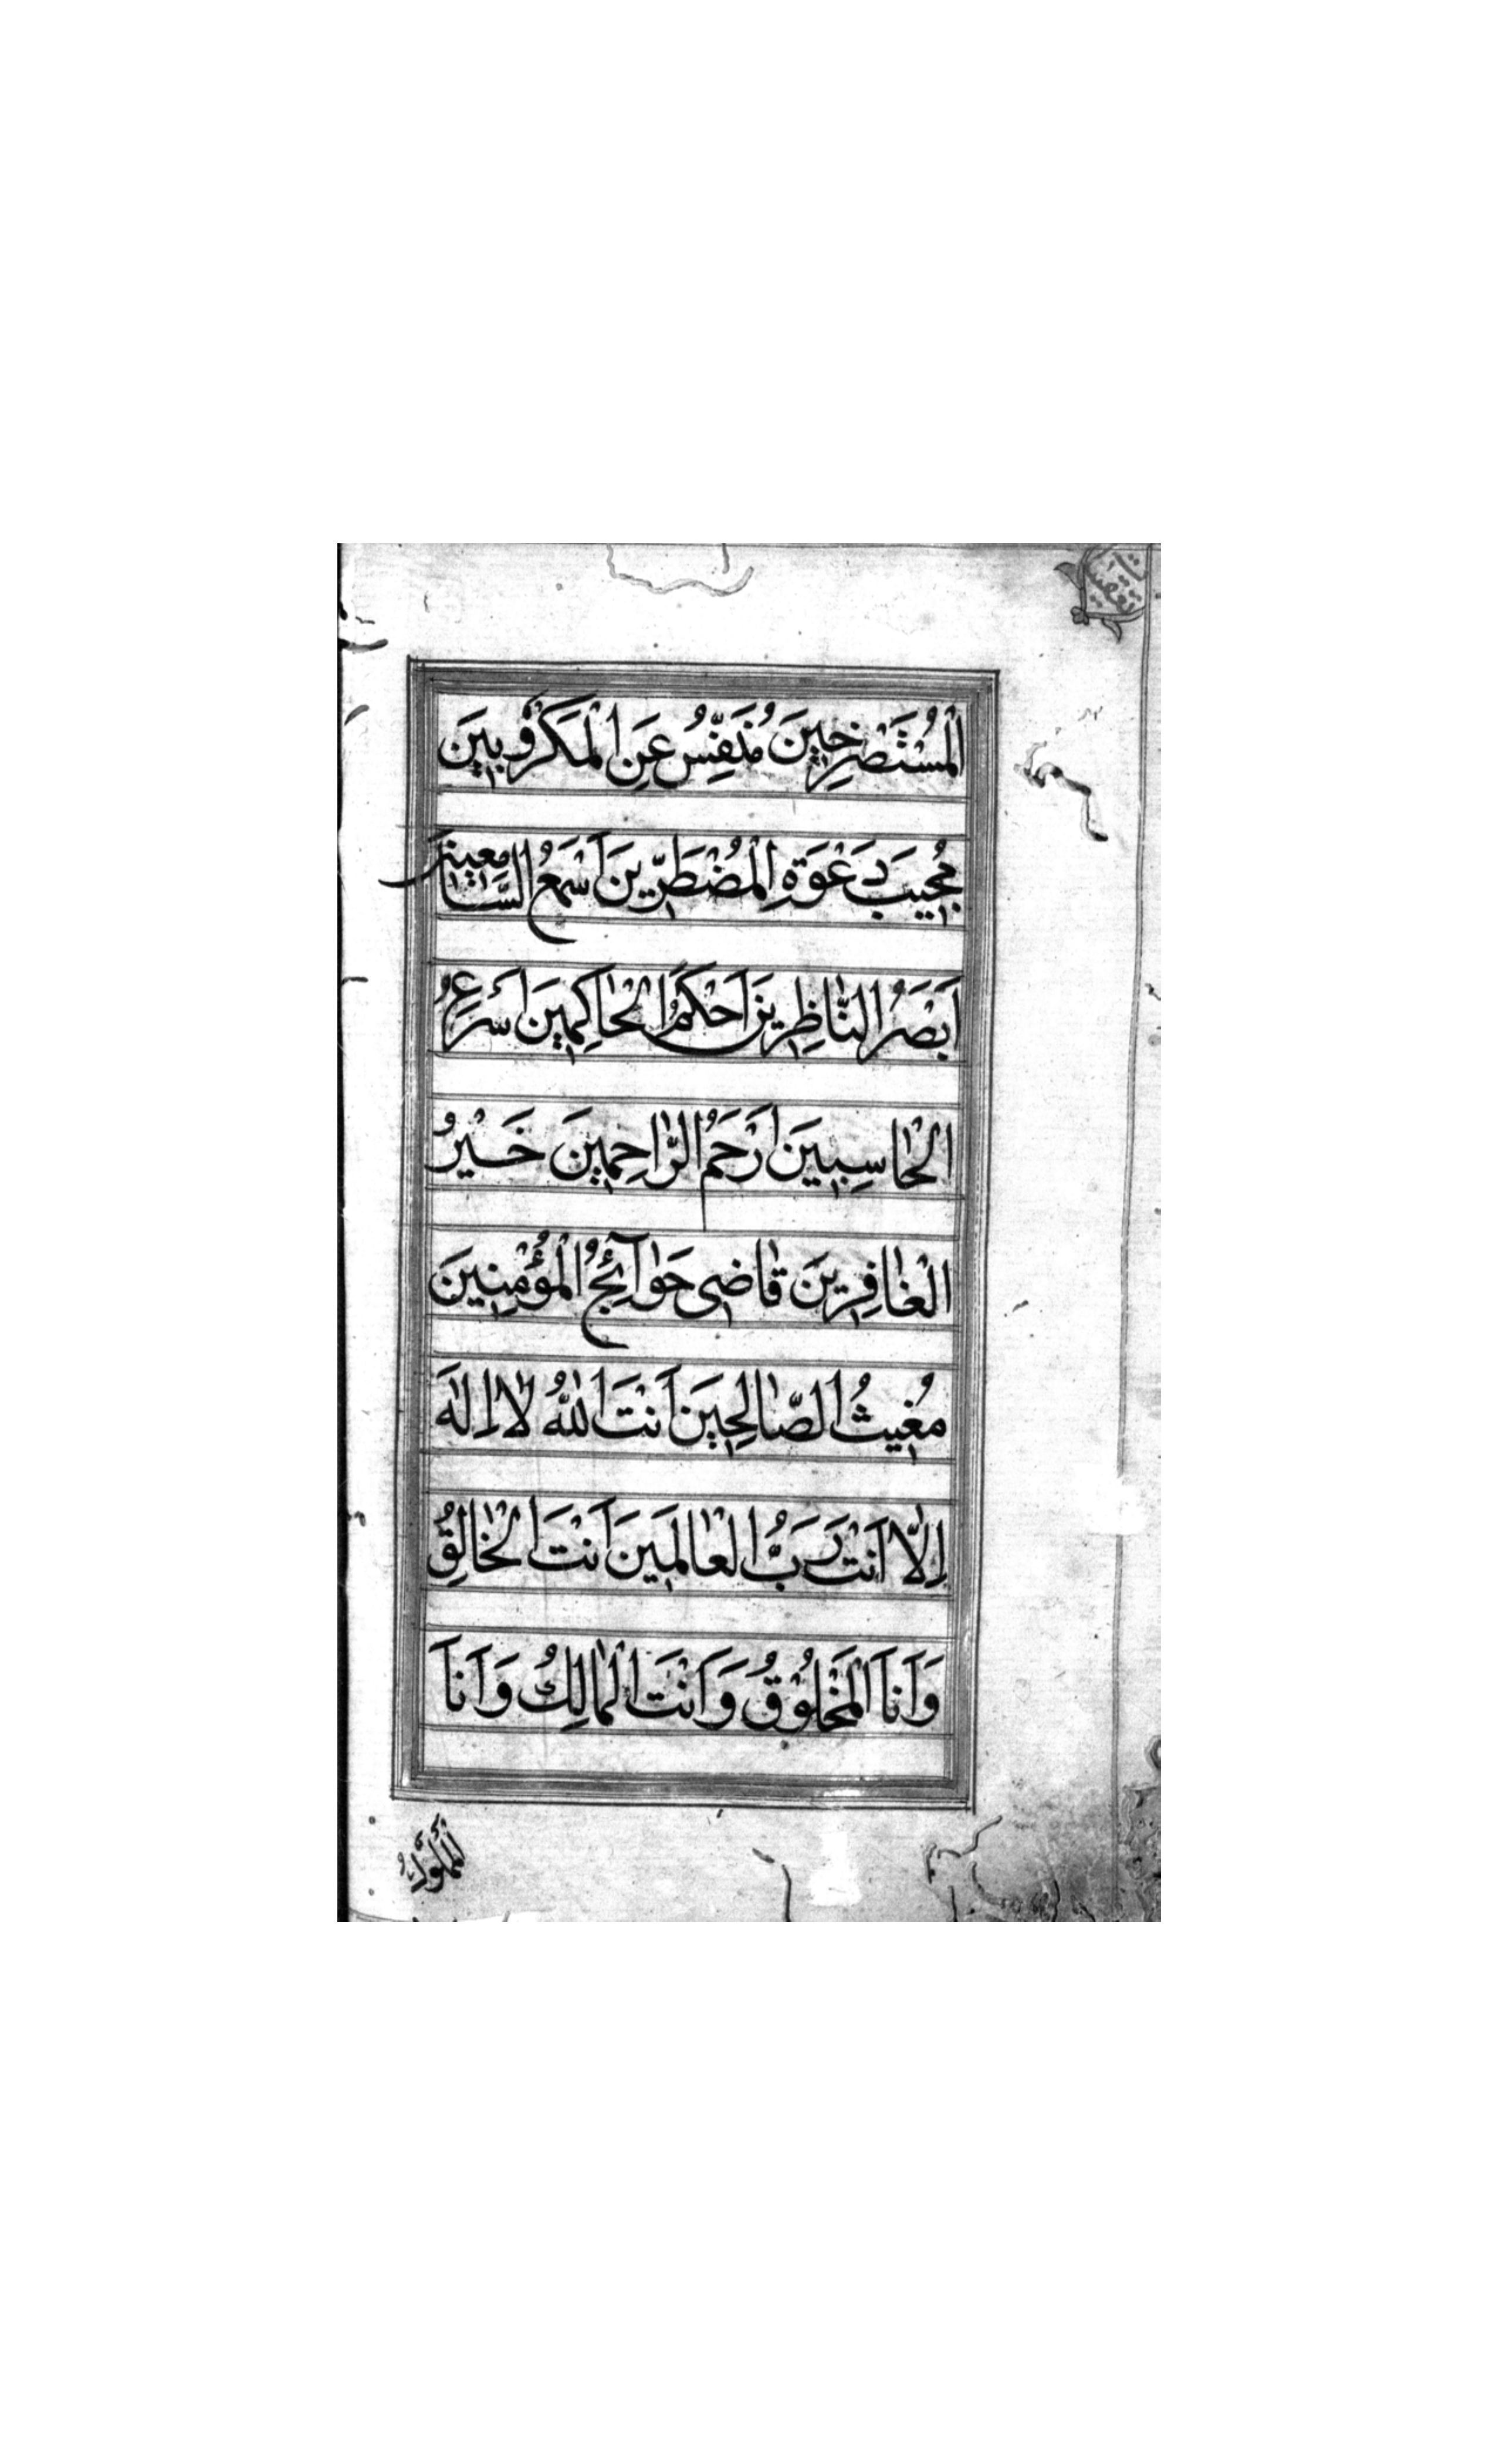 الْمُسْتَصْرِخِينَ مُنَفِّسُ عَنِ الْمَكْرُوبِينَ
مُجِيبَ دَعْوَةِ الْمُضْطَرِّينَ اَسْمَعُ السَّامِعِينَ
اَبْصَرُ النَّاظِرِينَ اَحْكَمُ الْحَاكِمِينَ اَسْرَعُ
الْحَاسِبِينَ اَرْحَمُ الرَّاحِمِينَ خَيْرُ
الْغَافِرِينَ قَاضِى حَوَآئِجُ الْمُؤْمِنِينَ
مُغِيثُ الصَّالِحِينَ اَنْتَ اللهُ لَا اِلٰهَ
اِلَّا اَنْتَ رَبُّ الْعَالَمِينَ اَنْتَ الْخَالِقُ
وَاَنَا الْمَخْلُوقُ وَاَنْتَ الْمَالِكُ وَاَنَا
الْمَمْلُوكُ